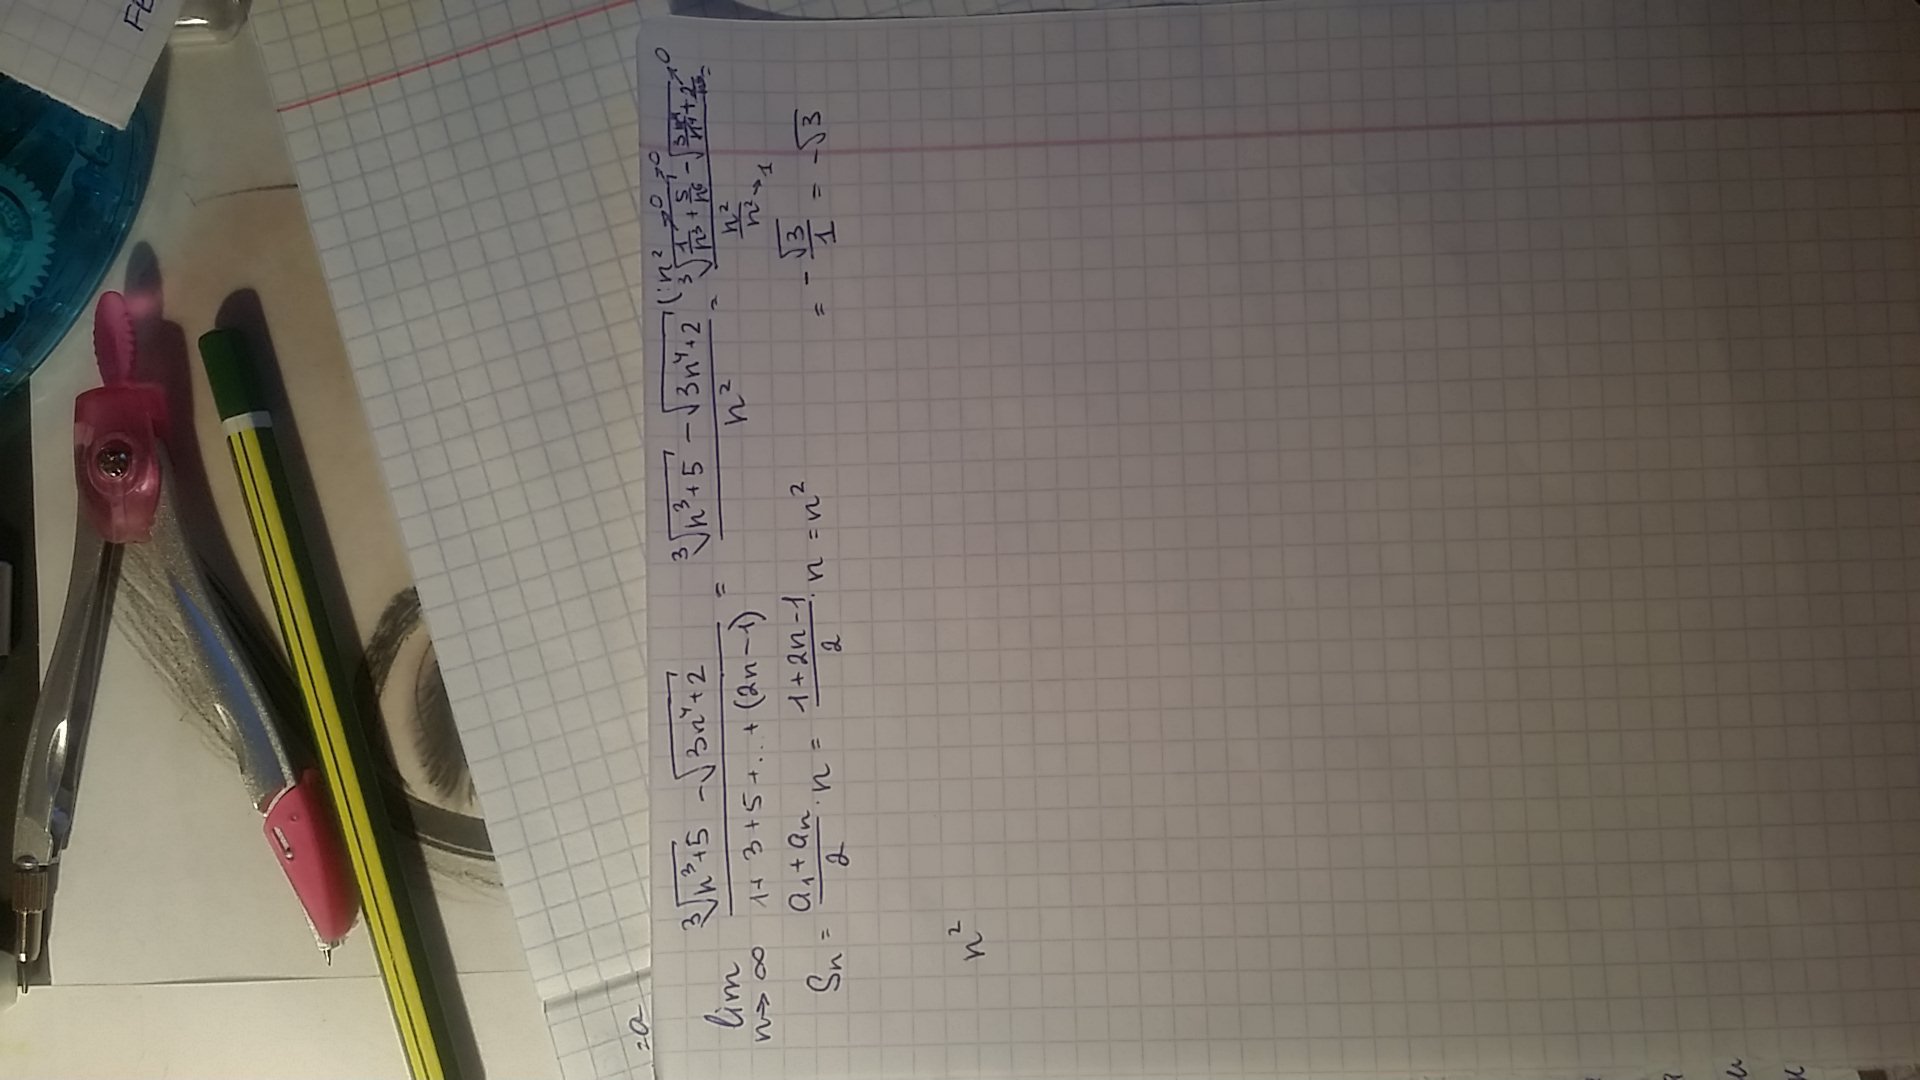 Fe
=a
lim n→∞ (∛(n³+5) - √(3n⁴+2)) / (1+3+5+...+(2n-1)) = (∛(n³+5) - √(3n⁴+2)) / n² (:n² = (∛(1/n³ →0 + 5/n⁶ →0) - √(3n⁴/n⁴ + 2/n⁴ →0)) / (n²/n² →1)
Sn = (a₁+aₙ)/2 · n = (1+2n-1)/2 · n = n² = -√3/1 = -√3
n²